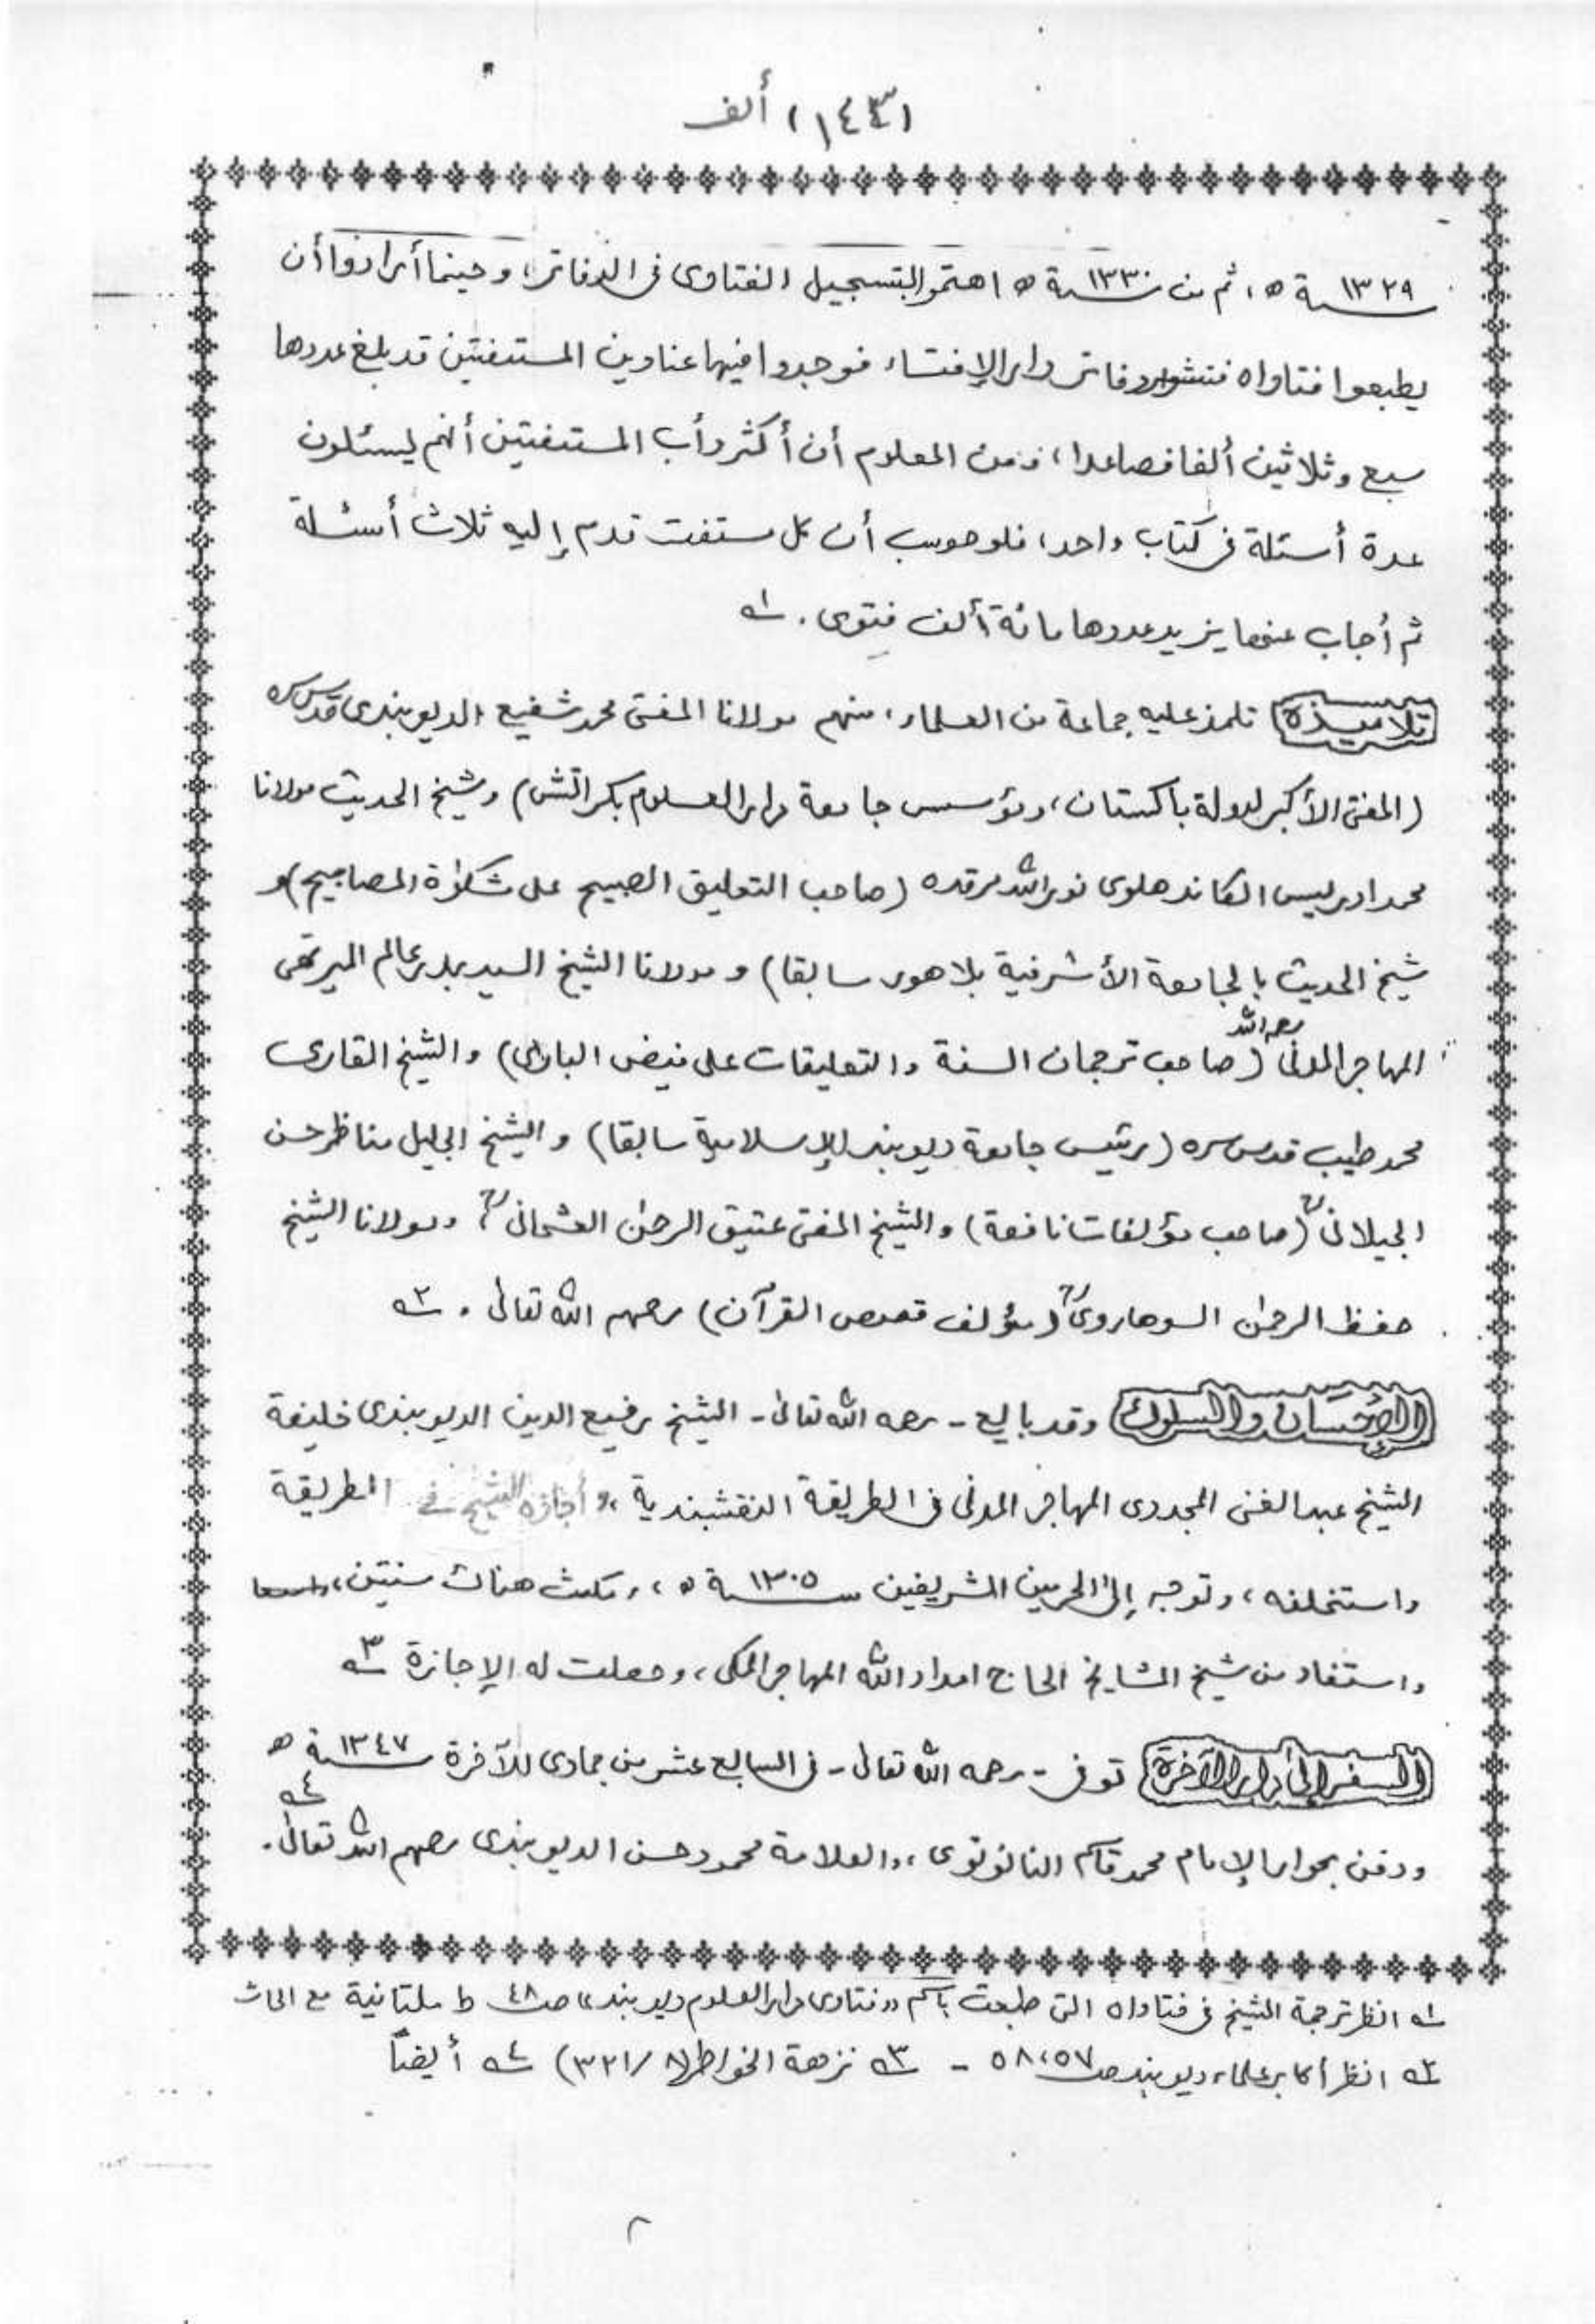 (١٤٤٣) ألف
سنة ١٣٢٩ ه، ثم من سنة ١٣٣٠ ه اهتموا بتسجيل الفتاوى فى الدفاتر، وحينما أرادوا أن
يطبعوا فتاواه فتشوا دفاتر دار الإفتاء فوجدوا فيها عناوين المستفتين قد بلغ عددها
سبع وثلاثين ألفا فصاعدا، ومن المعلوم أن أكثر دأب المستفتين أنهم ليسئلون
عدة أسئلة فى كتاب واحد، فلو حوسب أن كل مستفت قدم إليه ثلاث أسئلة
ثم أجاب عنها يزيد عددها مائة ألف فتوى. ١ه
تلاميذه تلمذ عليه جماعة من العلماء، منهم مولانا المفتى محمد شفيع الديوبندى قدس سره
(المفتى الأكبر لدولة باكستان، ومؤسس جامعة دار العلوم بكراتشى) وشيخ الحديث مولانا
محمد ادريس الكاندهلوى نور الله مرقده (صاحب التعليق الصبيح على مشكوٰة المصابيح) و
شيخ الحديث بالجامعة الأشرفية بلاهور سابقا) و مولانا الشيخ السيد بدر عالم الميرتهى
المهاجر المدنى رحمه الله (صاحب ترجمان السنة والتعليقات على فيض البارى) والشيخ القارى
محمد طيب قدس سره (رئيس جامعة ديوبند الإسلامية سابقا) و الشيخ الجليل مناظر حسن
الجيلانى (صاحب مؤلفات نافعة) والشيخ المفتى عتيق الرحمٰن العثمانى، ومولانا الشيخ
حفظ الرحمٰن السوهاروى (مؤلف قصص القرآن) رحمهم الله تعالى. ٢ه
الإحسان والسلوك وقد بايع - رحمه الله تعالىٰ - الشيخ رفيع الدين الديوبندى خليفة
الشيخ عبد الغنى المجددى المهاجر المدنى فى الطريقة النقشبندية، وأجازه الشيخ فى الطريقة
واستخلفه، وتوجه إلى الحرمين الشريفين سنة ١٣٠٥ ه، ومكث هناك سنتين،
واستفاد من شيخ المشايخ الحاج امداد الله المهاجر المكى، وحصلت له الإجازة ٣ه
السفر إلى دار الآخرة توفى - رحمه الله تعالى - فى السابع عشر من جمادى الآخرة سنة ١٣٤٧ ه
ودفن بجوار الإمام محمد قاسم النانوتوى، والعلامة محمود حسن الديوبندى رحمهم الله تعالىٰ. ٤ه
١ه انظر ترجمة الشيخ فى فتاواه التى طبعت باسم "فتاوى دار العلوم ديوبند" صـ ٤٨ ط ملتانية مع
٢ه انظر أكابر علماء ديوبند صـ ٥٧، ٥٨ - ٣ه نزهة الخواطر (٨/٣٢١) ٤ه أيضاً
٨